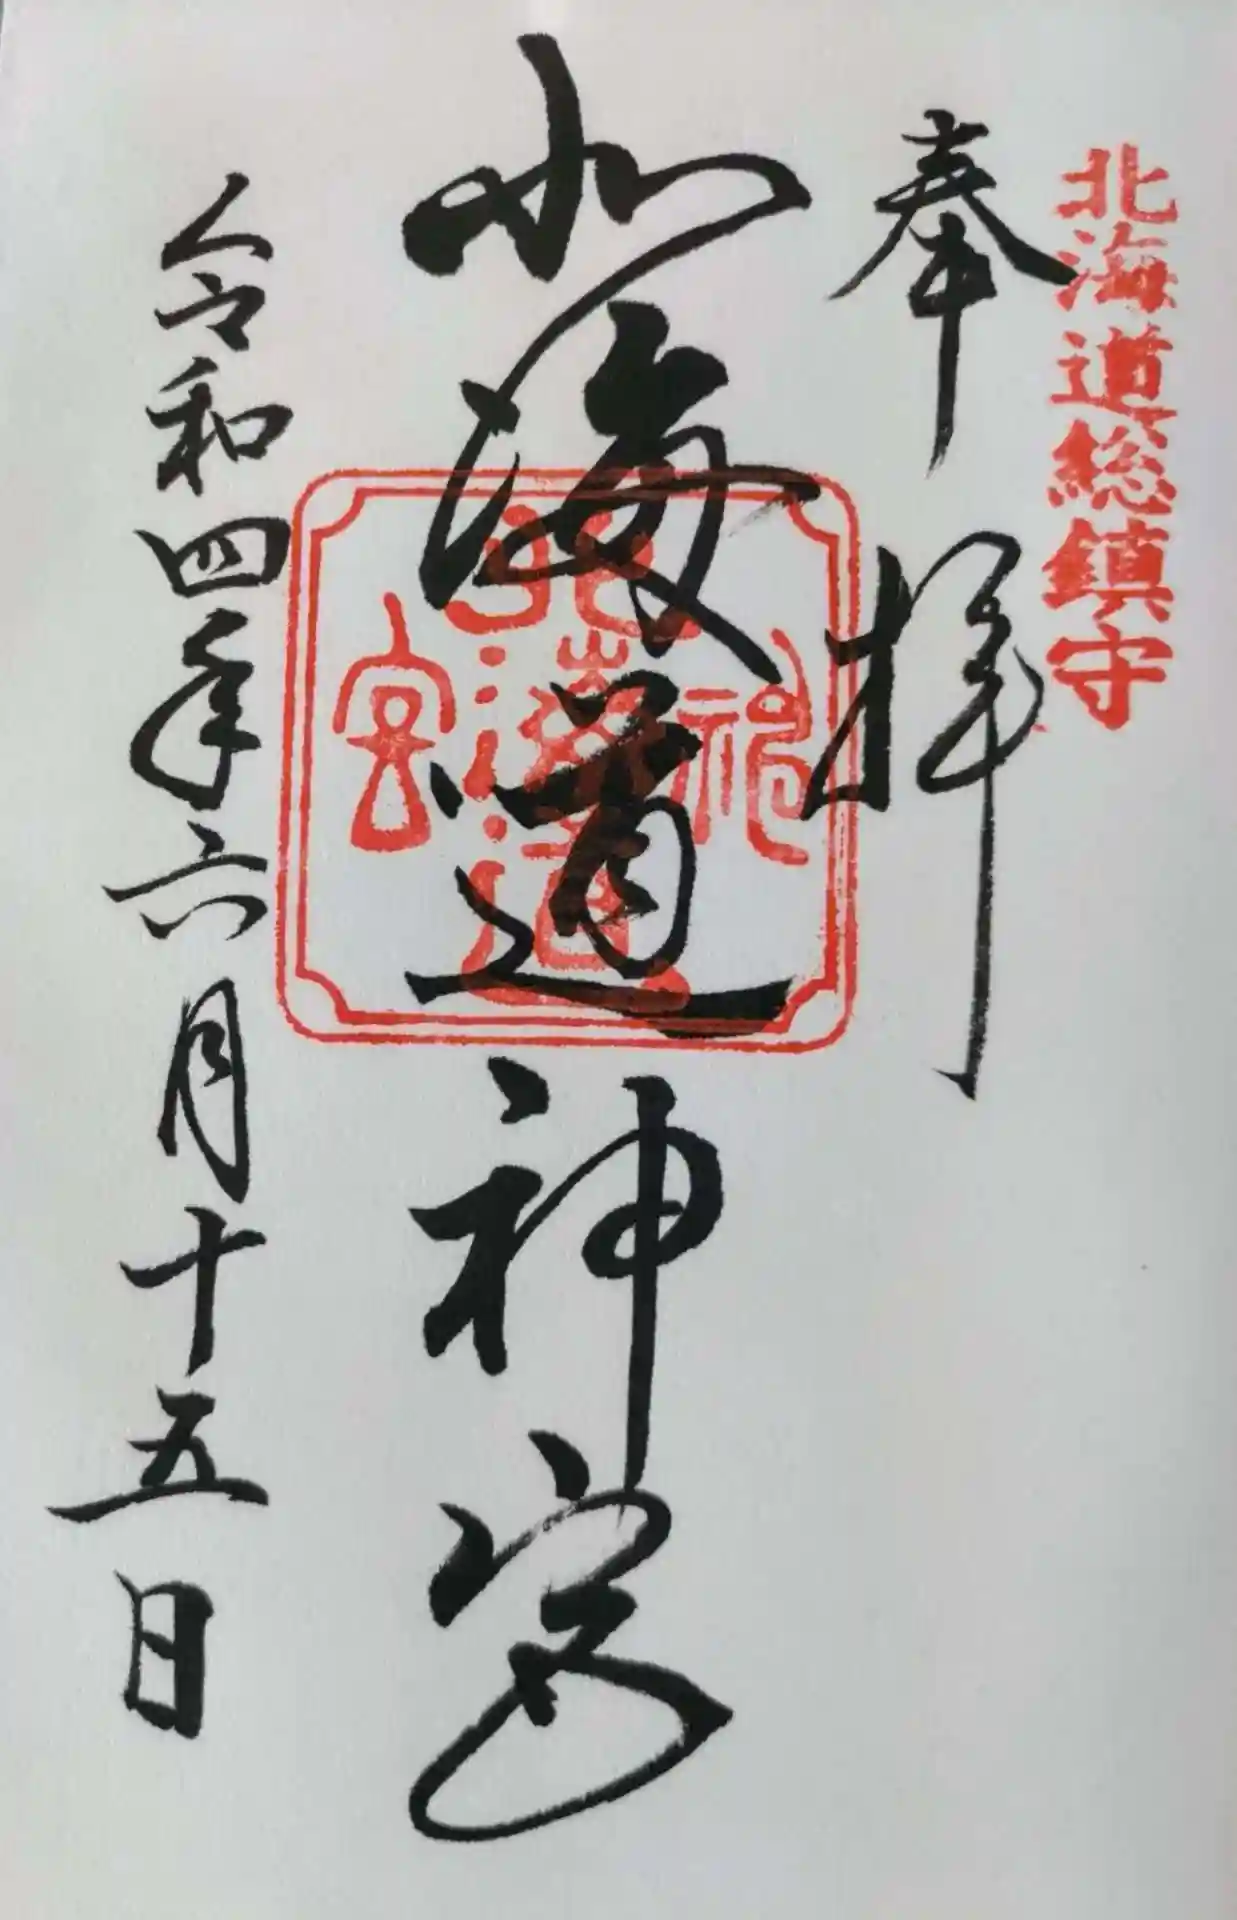 北海道総鎮守
奉拝
北海道神宮
北海道神宮
令和四年六月十五日